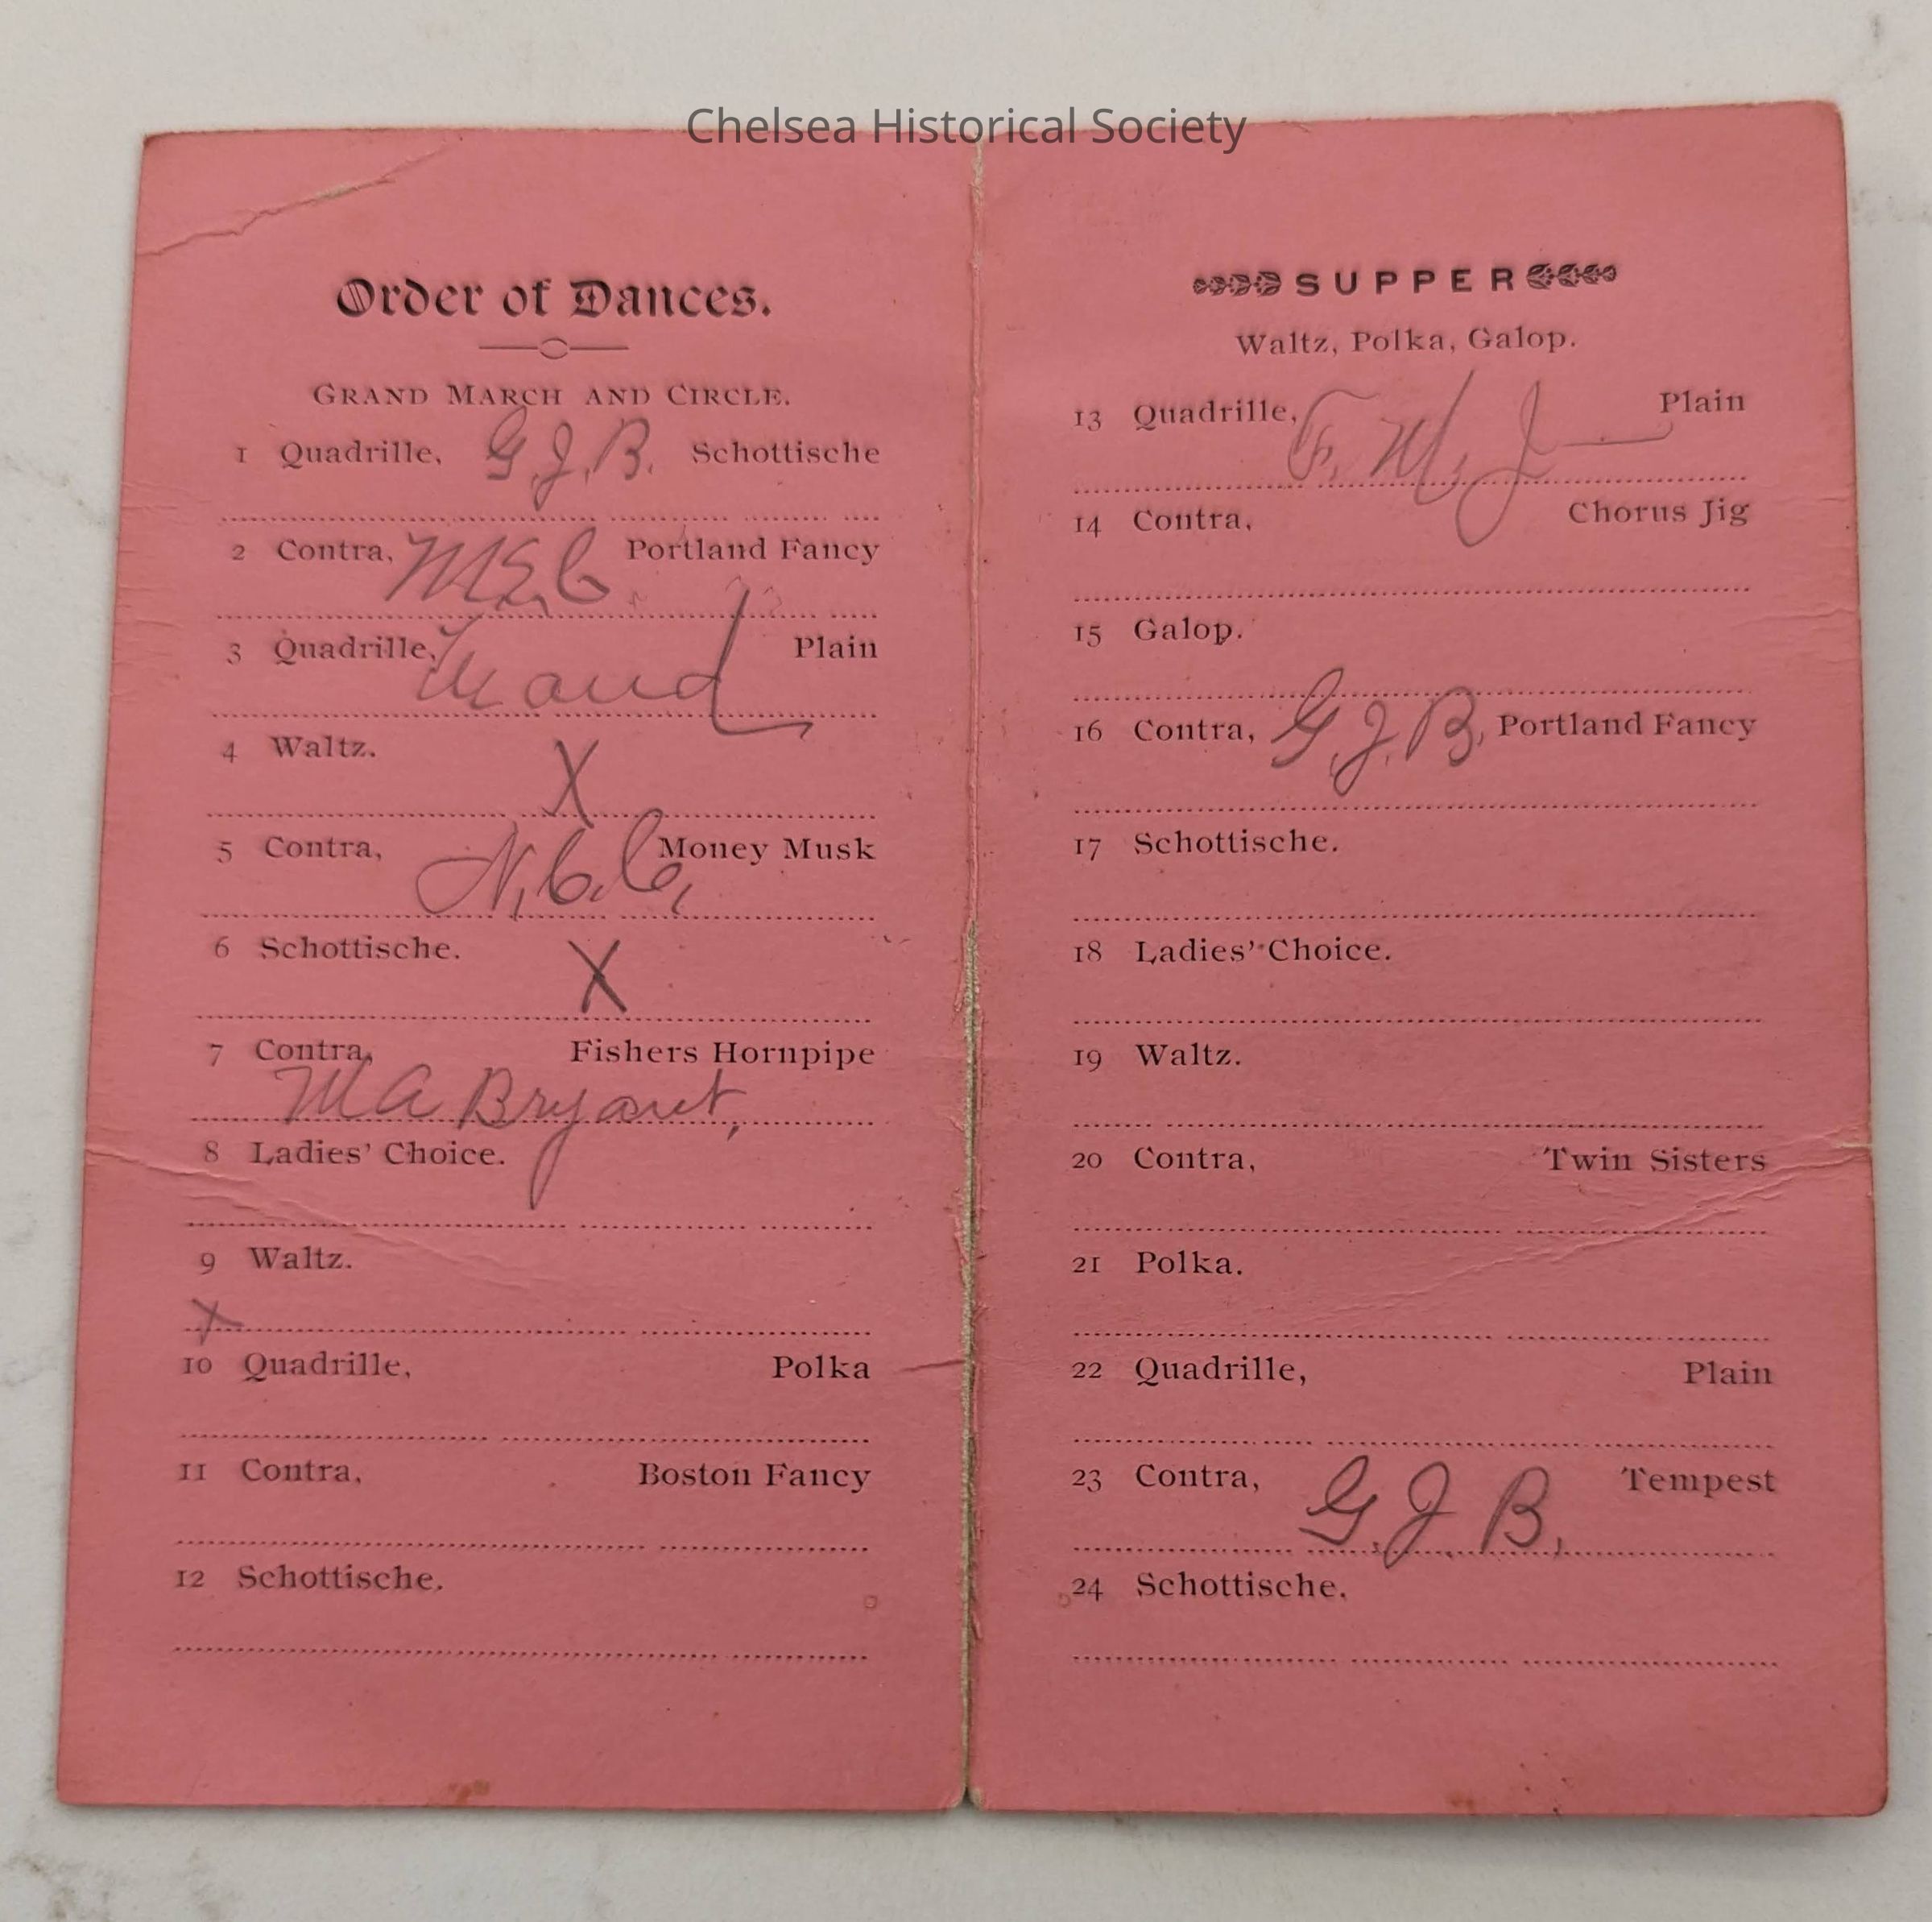 Chelsea Historical Society
Order of Dances.
GRAND MARCH AND CIRCLE.
1 Quadrille, G. J. B. Schottische
2 Contra, M E C Portland Fancy
3 Quadrille, Maud Plain
4 Waltz.
X
5 Contra, N. C. C. Money Musk
6 Schottische.
X
7 Contra, Fishers Hornpipe
M A Bryant,
8 Ladies' Choice.
9 Waltz.
X
10 Quadrille, Polka
11 Contra, Boston Fancy
12 Schottische.
SUPPER
Waltz, Polka, Galop.
13 Quadrille, Plain
F. M. J
14 Contra, Chorus Jig
15 Galop.
16 Contra, G. J. B. Portland Fancy
17 Schottische.
18 Ladies' Choice.
19 Waltz.
20 Contra, Twin Sisters
21 Polka.
22 Quadrille, Plain
23 Contra, Tempest
G. J. B.
24 Schottische.